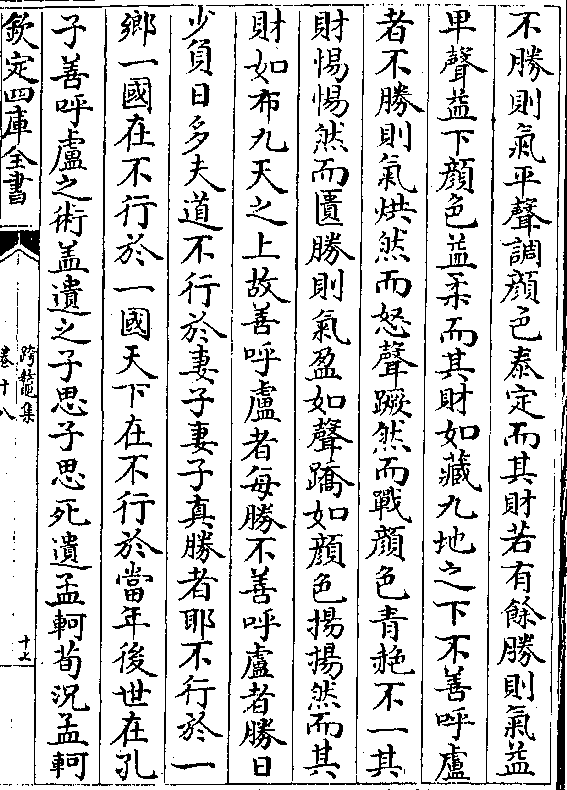 不勝則氣平聲調顔色泰定而其財若有餘勝則氣益
卑聲益下顔色益柔而其財如藏九地之下不善呼盧
者不勝則氣烘然而怒聲蹶然而戰顔色青赩不一其
財惕惕然而匱勝則氣盈如聲蹻如顔色揚揚然而其
財如布九天之上故善呼盧者每勝不善呼盧者勝日
少負日多夫道不行於妻子妻子真勝者耶不行於一
鄉一國在不行於一國天下在不行於當年後世在孔
子善呼盧之術盖遺之子思子思死遺孟軻荀況孟軻
欽定四庫全書
跨鼇集
卷十八
十七